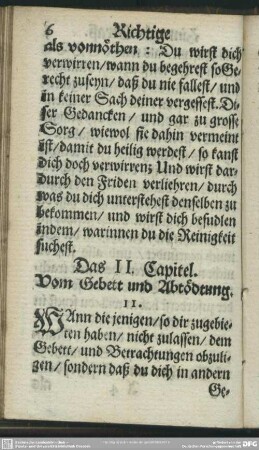 6 Richtige
als vonnöthen : Du wirst dich
verwirren / wann du begehrest so Ge-
recht zuseyn / daß du nie fallest / und
in keiner Sach deiner vergessest. Di-
ser Gedancken / und gar zu grosse
Sorg / wiewol sie dahin vermeint
ist / damit du heilig werdest / so kanst
dich doch verwirren: Und wirst dar-
durch den Friden verliehren / durch
was du dich unterstehest denselben zu
bekommen / und wirst dich besudlen
indem / warinnen du die Reinigkeit
suchest.
Das II. Capitel.
Vom Gebett und Abtödtung.
11.
WAnn die jenigen / so dir zugebie-
ten haben / nicht zulassen / dem
Gebett / und Betrachtungen abzuli-
gen / sondern daß du dich in andern
Ge-